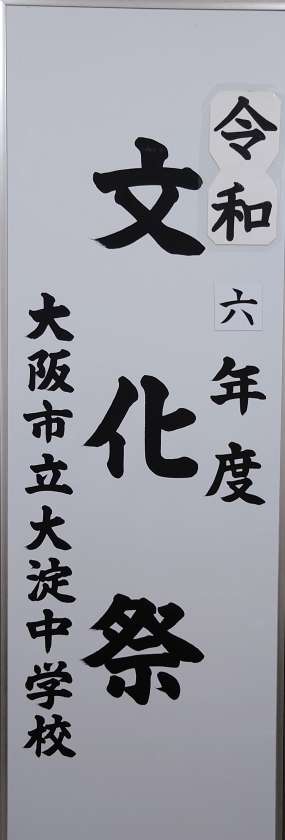 令和六年度
文化祭
大阪市立大淀中学校